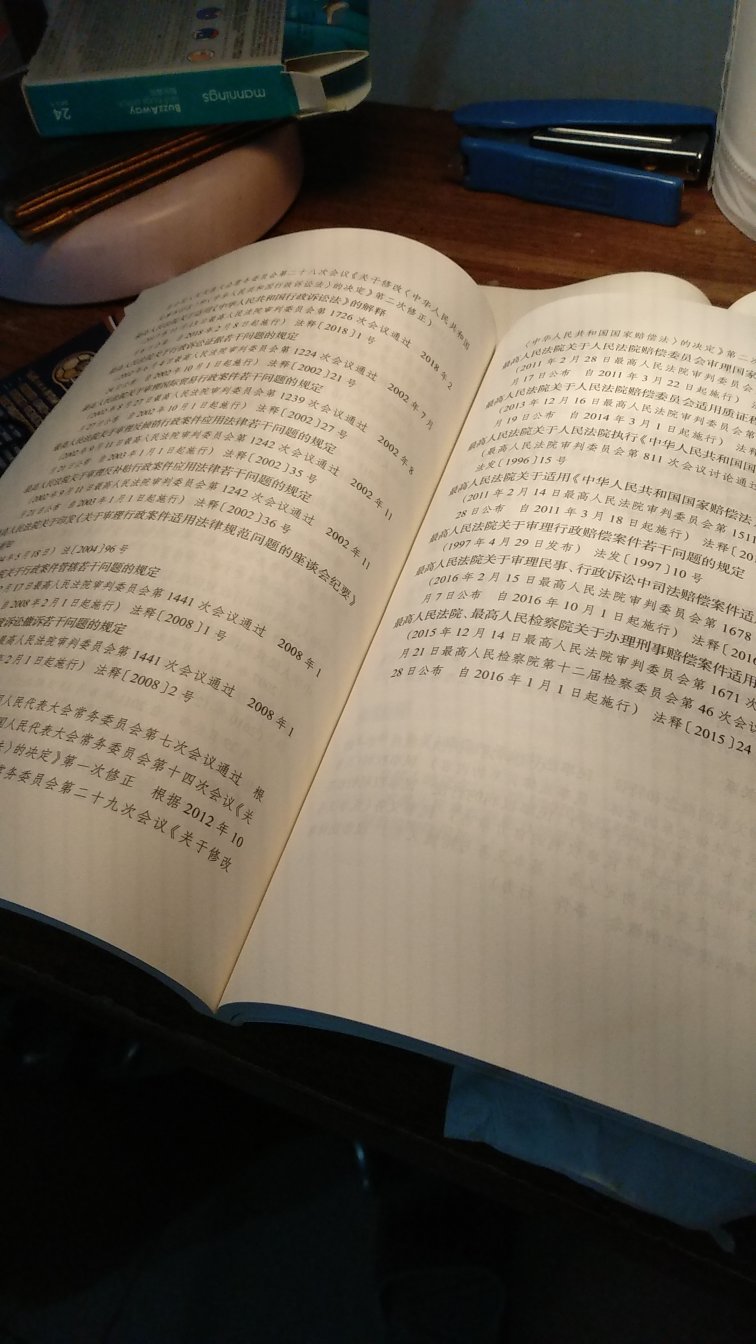 mannings
BuzzAway
24
会常务委员会第二十八次会议《关于修改〈中华人民共和国
〈中华人民共和国行政诉讼法〉的决定》第二次修正)
《中华人民共和国行政诉讼法》的解释
最高人民法院审判委员会第1726次会议通过 2018年2
自2018年2月8日起施行) 法释〔2018〕1号
最高人民法院关于行政诉讼证据若干问题的规定
最高人民法院审判委员会第1224次会议通过 2002年7月
自2002年10月1日起施行) 法释〔2002〕21号
最高人民法院关于审理国际贸易行政案件若干问题的规定
(2002年8月27日最高人民法院审判委员会第1239次会议通过 2002年8
月27日公布 自2002年10月1日起施行) 法释〔2002〕27号
最高人民法院关于审理反倾销行政案件应用法律若干问题的规定
(2002年9月11日最高人民法院审判委员会第1242次会议通过 2002年11
月21日公布 自2003年1月1日起施行) 法释〔2002〕35号
最高人民法院关于审理反补贴行政案件应用法律若干问题的规定
(2002年9月11日最高人民法院审判委员会第1242次会议通过 2002年11
月21日公布 自2003年1月1日起施行) 法释〔2002〕36号
最高人民法院关于印发《关于审理行政案件适用法律规范问题的座谈会纪要》
通知
年5月18日) 法〔2004〕96号
法院关于行政案件管辖若干问题的规定
月17日最高人民法院审判委员会第1441次会议通过 2008年1
自2008年2月1日起施行) 法释〔2008〕1号
诉讼撤诉若干问题的规定
最高人民法院审判委员会第1441次会议通过 2008年1
年2月1日起施行) 法释〔2008〕2号
国人民代表大会常务委员会第七次会议通过 根
国人民代表大会常务委员会第十四次会议《关
法〉的决定》第一次修正 根据2012年10
常务委员会第二十九次会议《关于修改
〈中华人民共和国国家赔偿法〉的决定》第二次
最高人民法院关于人民法院赔偿委员会审理国家
(2011年2月28日最高人民法院审判委员会
月17日公布 自2011年3月22日起施行)
最高人民法院关于人民法院赔偿委员会适用质证程
(2013年12月16日最高人民法院审判委员会第
月19日公布 自2014年3月1日起施行) 法释
最高人民法院关于人民法院执行《中华人民共和国国
(最高人民法院审判委员会第811次会议讨论通过
法发〔1996〕15号
最高人民法院关于适用《中华人民共和国国家赔偿法
(2011年2月14日最高人民法院审判委员会第1511
28日公布 自2011年3月18日起施行) 法释〔20
最高人民法院关于审理行政赔偿案件若干问题的规定
(1997年4月29日发布) 法发〔1997〕10号
最高人民法院关于审理民事、行政诉讼中司法赔偿案件适
(2016年2月15日最高人民法院审判委员会第1678
月7日公布 自2016年10月1日起施行) 法释〔2016
最高人民法院、最高人民检察院关于办理刑事赔偿案件适用
(2015年12月14日最高人民法院审判委员会第1671次
月21日最高人民检察院第十二届检察委员会第46次会议
28日公布 自2016年1月1日起施行) 法释〔2015〕24